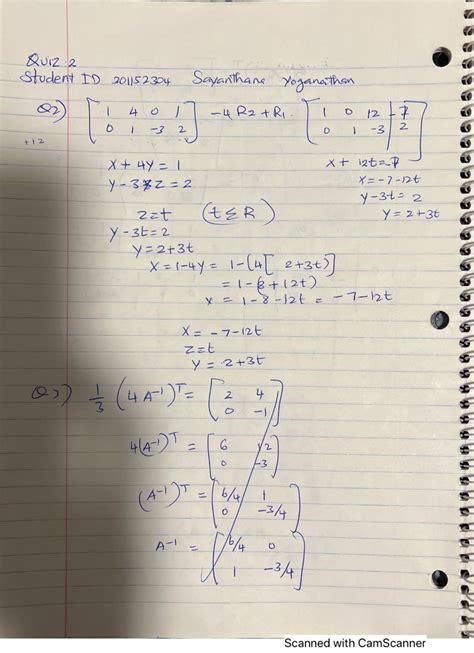 QUIZ 2
Student ID 201152304 Sayanthana Yoganathan
Q2) [ 1 4 0 1 ] -4R2+R1 [ 1 0 12 -7 ]
[ 0 1 -3 2 ] [ 0 1 -3 2 ]
x + 4y = 1 x + 12t = -7
y - 3z = 2 x = -7 - 12t
y - 3t = 2
z = t (t ∈ R) y = 2 + 3t
y - 3t = 2
y = 2 + 3t
x = 1 - 4y = 1 - (4[2+3t)]
= 1 - (8 + 12t)
x = 1 - 8 - 12t = -7 - 12t
x = -7 - 12t
z = t
y = 2 + 3t
1/3 (4A^-1)^T = [ 2 4 ]
[ 0 -1 ]
4(A^-1)^T = [ 6 12 ]
[ 0 -3 ]
(A^-1)^T = [ 6/4 1 ]
[ 0 -3/4 ]
A^-1 = [ 6/4 0 ]
[ 1 -3/4 ]
Scanned with CamScanner